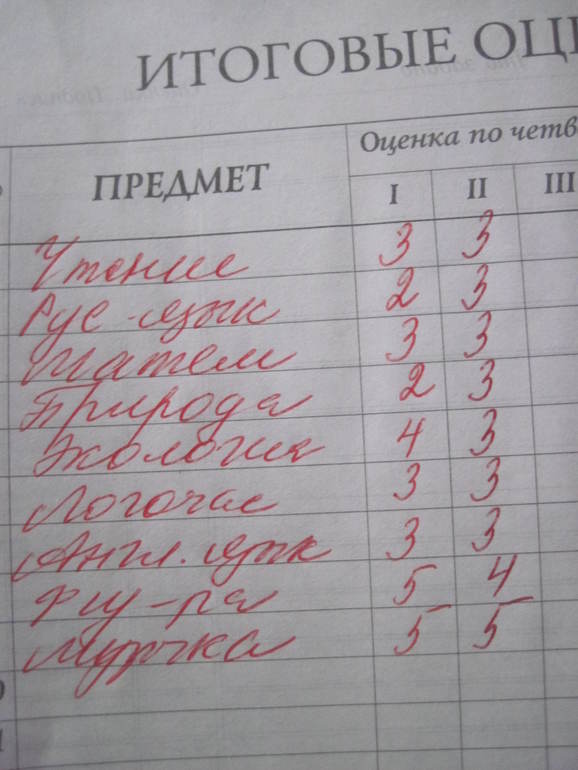 ИТОГОВЫЕ ОЦ
ПРЕДМЕТ Оценка по четв
I II III
Чтение 3 3
Рус-язык 2 3
Матем 3 3
Природа 2 3
Экология 4 3
Логочас 3 3
Англ. язык 3 3
Физ-ра 5 4
5 5